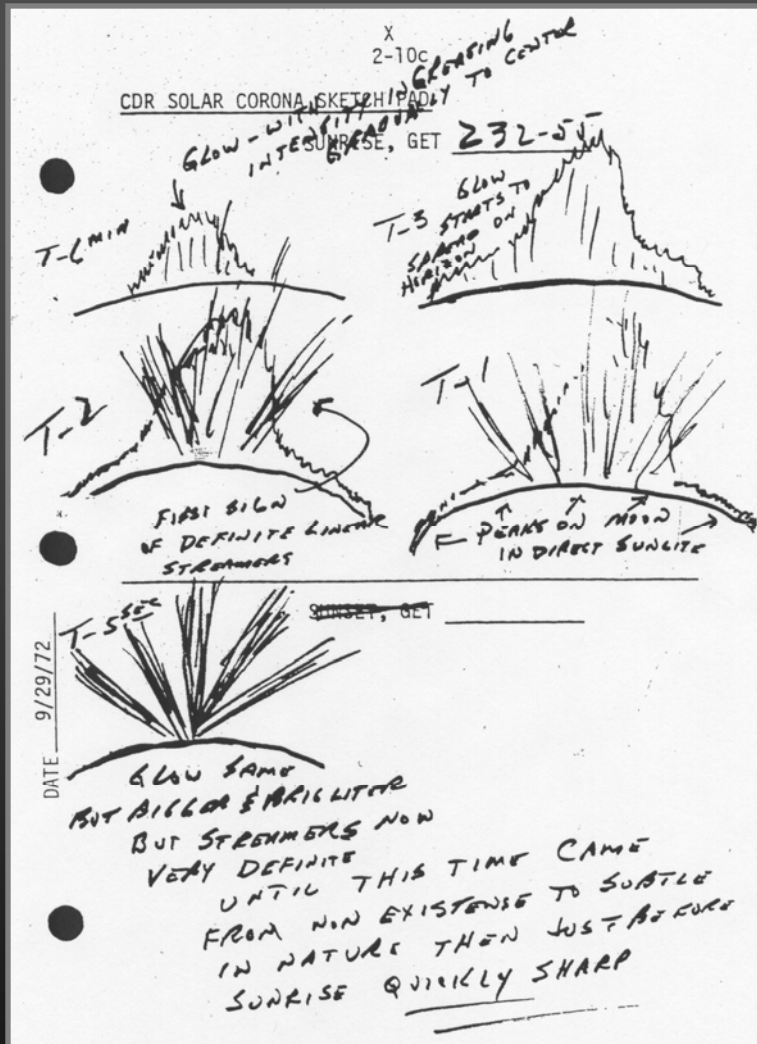 X
2-10c
CDR SOLAR CORONA SKETCH PAD
SUNRISE, GET 232-55
GLOW - WITH
INTENSITY INCREASING
GRADUALLY TO CENTER
T-6 MIN
T-3
GLOW
STARTS TO
SPREAD ON
HORIZON
T-2
FIRST SIGN
OF DEFINITE LINEAR
STREAMERS
T-1
PEAKS ON MOON
IN DIRECT SUNLITE
SUNSET, GET
T-5 SEC
DATE 9/29/72
GLOW SAME
BUT BIGGER & BRIGLITER
BUT STREAMERS NOW
VERY DEFINITE
UNTIL THIS TIME CAME
FROM NON EXISTENSE TO SUBTLE
IN NATURE THEN JUST BEFORE
SUNRISE QUICKLY SHARP